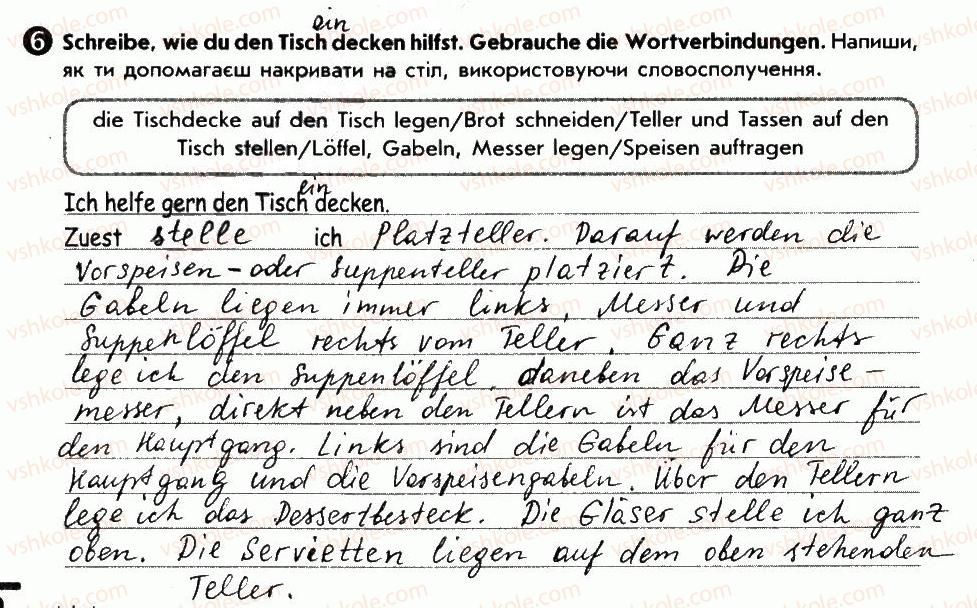 ein
6 Schreibe, wie du den Tisch decken hilfst. Gebrauche die Wortverbindungen. Напиши,
як ти допомагаєш накривати на стіл, використовуючи словосполучення.
die Tischdecke auf den Tisch legen/Brot schneiden/Teller und Tassen auf den
Tisch stellen/Löffel, Gabeln, Messer legen/Speisen auftragen
ein
Ich helfe gern den Tisch decken.
Zuest stelle ich Platzteller. Darauf werden die
Vorspeisen- oder Suppenteller platziert. Die
Gabeln liegen immer links, Messer und
Suppenlöffel rechts vom Teller. Ganz rechts
lege ich den Suppenlöffel, daneben das Vorspeise-
messer, direkt neben den Tellern ist das Messer für
den Hauptgang. Links sind die Gabeln für den
Hauptgang und die Vorspeisengabeln. Über den Tellern
lege ich das Dessertbesteck. Die Gläser stelle ich ganz
oben. Die Servietten liegen auf dem oben stehenden
Teller.